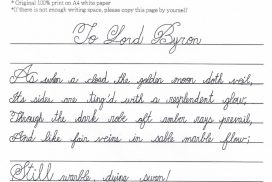 * Original 100% print on A4 white paper
*If there is not enough writing space, please copy this page by yourself
To Lord Byron
As when a cloud the golden moon doth veil,
Its sides are ting'd with a resplendent glow,
Through the dark robe oft amber rays prevail,
And like fair veins in sable marble flow;
Still warble, dying swan!